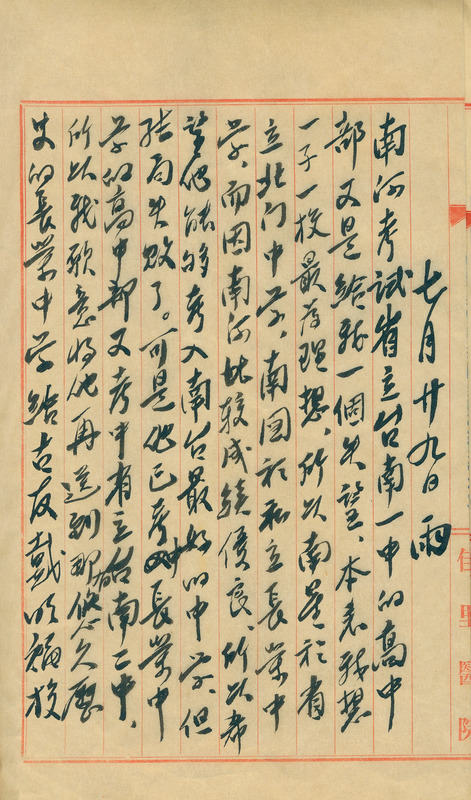 七月廿九日 雨
南河考試省立台南一中的高中
部又是給我一個失望、本来我想
一子一校最為理想、所以南星於省
立北门中学、南圖於私立長榮中
学、而因南河比較成績優良、所以希
望他能够考入南台最好的中学、但
結局失敗了。可是他已考取長榮中
学的高中部又考中省立台南二中、
所以我歡意將他再送到那個悠久歷
史的長榮中学給吉友戴明福校
佳里醫院